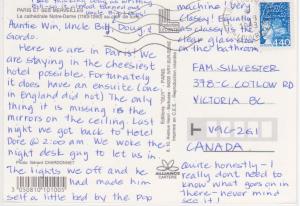 La cathédrale Notre-Dame (1163-1260)
Aunt Win, Uncle Bill, Doug &
Gordo.
Here we are in Paris! We
are staying in the cheesiest
hotel possible. Fortunately
it does have an ensuite (one
in England did not) The only
thing it is missing is the
mirrors on the ceiling. Last
night we got back to Hotel
Dore @ 2:00 am. We woke the
night desk guy to let us in.
The lights were off and he
had made him
self a little bed by the Pop
machine! Very
classy! Equally
as classy is the
clear glass door
on the bathroom
Quite honestly - I
really don't need to
know what goes on in
there - never mind
see it!
FAM. SILVESTER
398-C COTLOW RD
VICTORIA BC
V9C-2G1
CANADA
4,40
PARIS
Editions "GUY"
Photo: Gérard CHARDONNET
ALLIANCE
CARTERIE